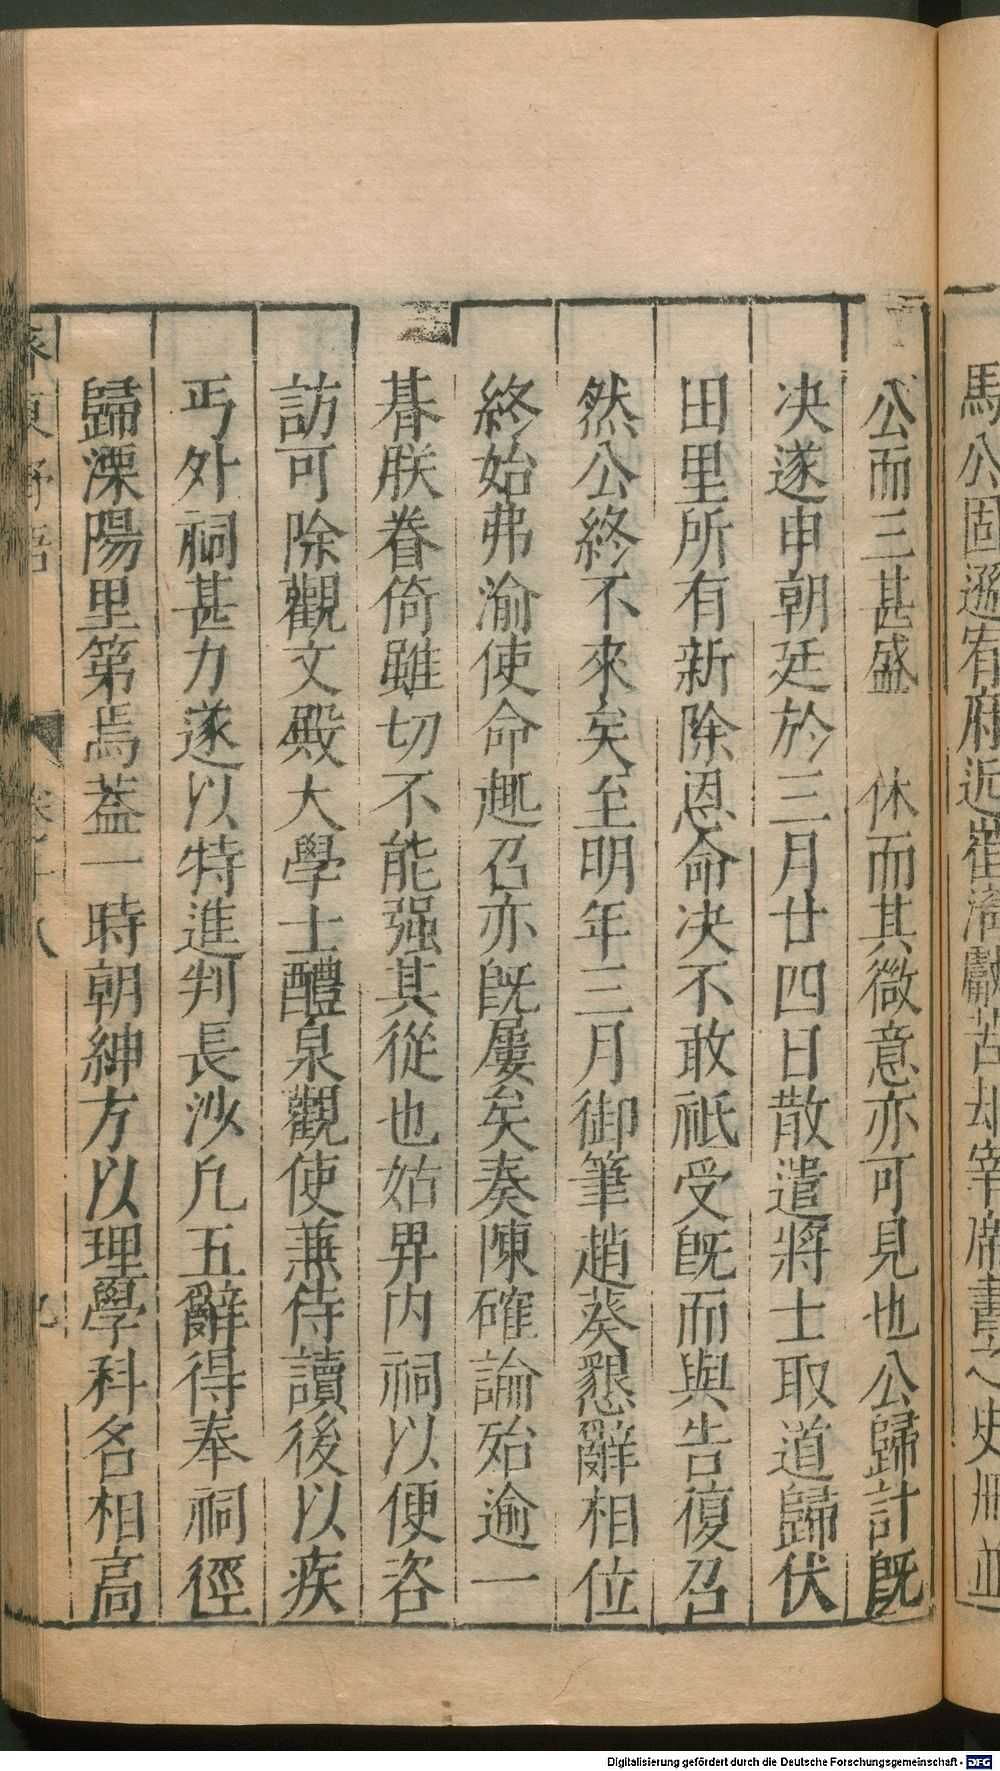 馬公固遜宥府近
公而三甚盛　休而其微意亦可見也公歸計旣
决遂申朝廷於三月廿四日散遣將士取道歸伏
田里所有新除恩命决不敢祗受旣而與告復召
然公終不來矣至明年三月御筆趙葵懇辭相位
終始弗渝使命趣召亦旣屢矣奏陳確論殆逾一
朞朕眷倚雖切不能强其從也姑畀内祠以便咨
訪可除觀文殿大學士醴泉觀使兼侍讀後以疾
丐外祠甚力遂以特進判長沙凢五辭得奉祠徑
歸溧陽里第焉蓋一時朝紳方以理學科名相高
齊東野語　卷十八　九
Digitalisierung gefördert durch die Deutsche Forschungsgemeinschaft - DFG